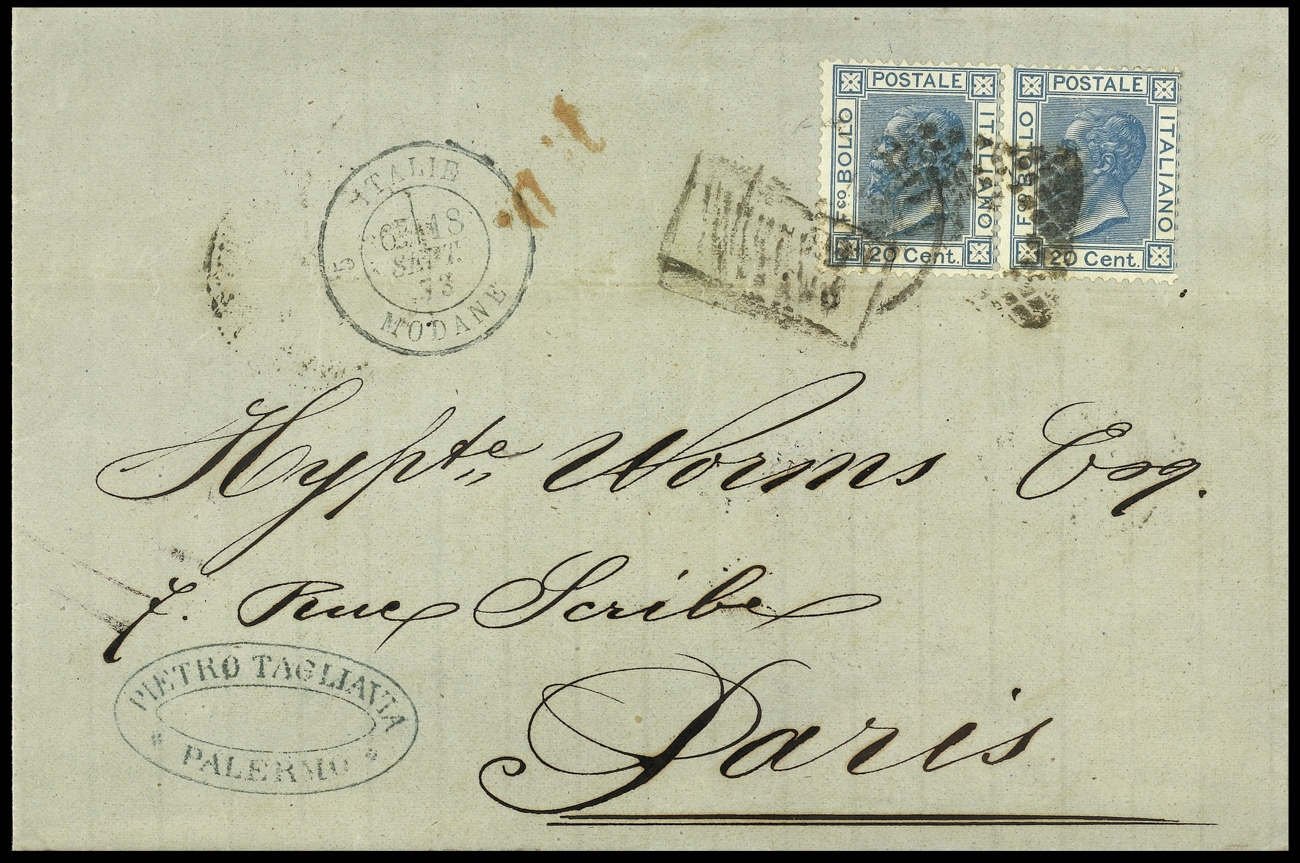 POSTALE
Fco BOLLO
ITALIANO
20 Cent.
POSTALE
Fco BOLLO
ITALIANO
20 Cent.
ITALIE
5
18
SEPT.
73
MODANE
Hypte Worms Esq.
7. Rue Scribe
Paris
PIETRO TAGLIAVIA
PALERMO